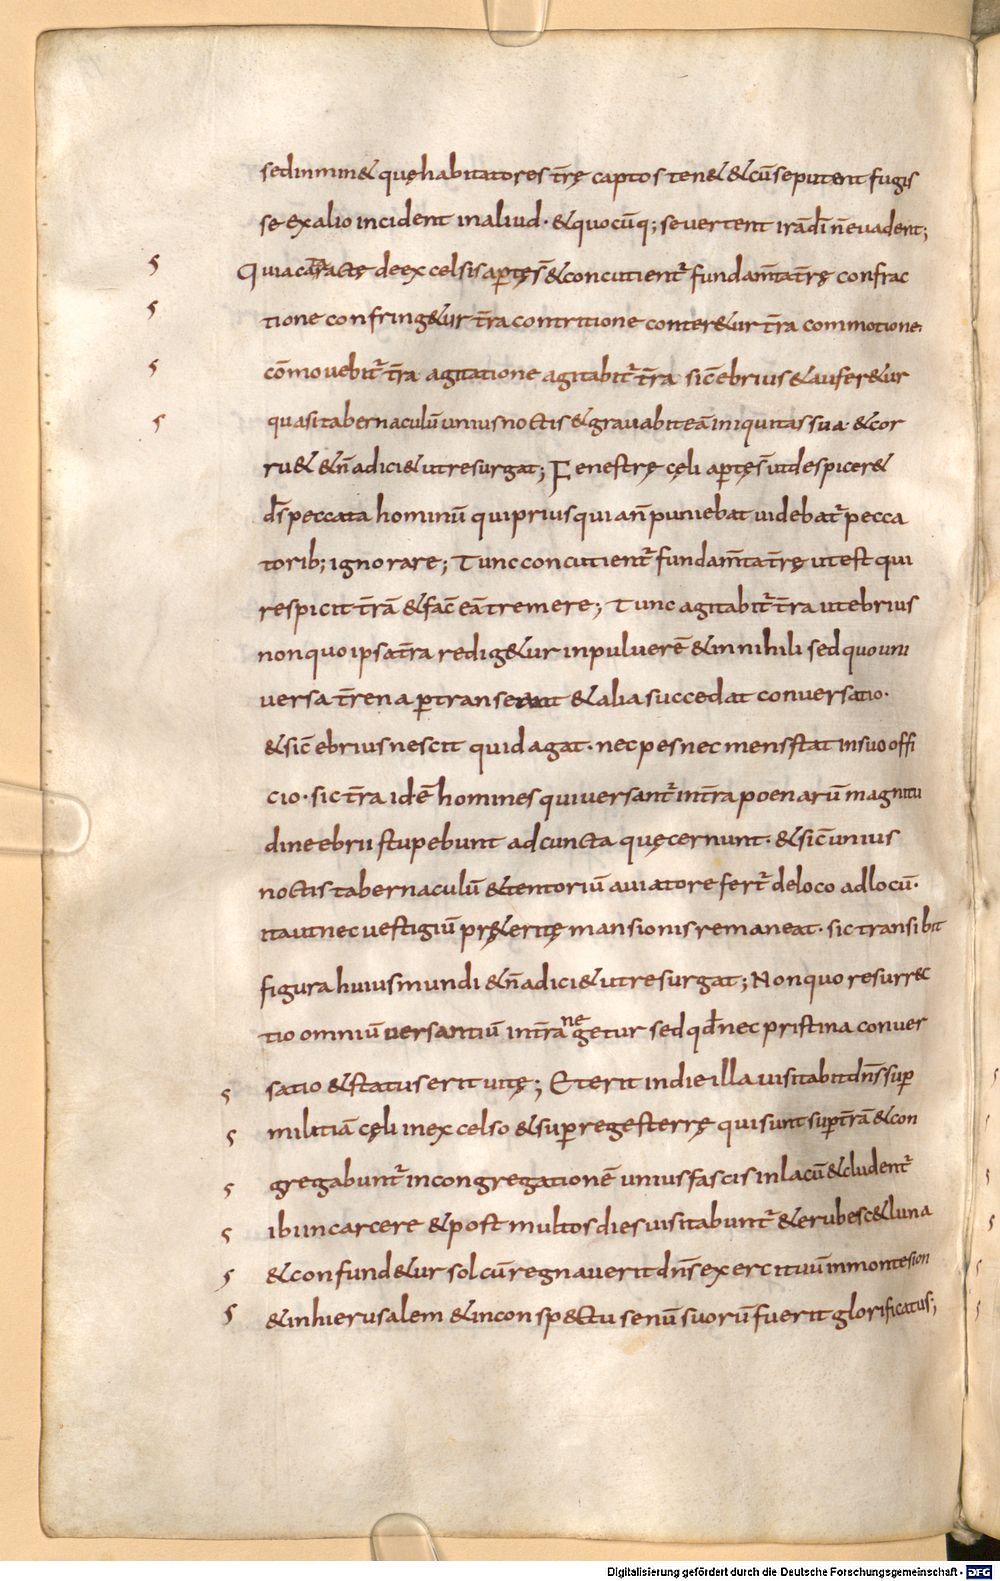 sedinmin& quęhabitatores t̄rę captos ten& &cū seputent fugis
se exalio incident inaliud · &quocūq; severtent irād̄i n̄evadent;
Quiacataractę deexcelsis aꝑtęs̄ &concutient̄ fundam̄ta t̄rę confrac
tione confring&ur t̄ra contritione conter&ur t̄ra commotione
cōmovebit̄ t̄ra agitatione agitabit̄ t̄ra sic̄ ebrius &aufer&ur
quasi tabernaculū unius noctis &gravabit eā iniquitas sua · &cor
ru& &n̄ adici& utresurgat; Fenestrę cęli aꝑtęs̄ utdespicer&
d̄s peccata hominū quipriusquian̄ puniebat videbat̄ pecca
torib; ignorare; Tunc concutient̄ fundam̄ta t̄rę utest qui
respicit t̄rā &fac̄ eā tremere; Tunc agitabit̄ t̄ra utebrius
nonquo ipsa t̄ra redig&ur inpulverē &innihili sed quo uni
versa t̄rena ꝑtranseant &alia succedat conversatio·
&sic̄ ebrius nescit quid agat · nec pes nec mens stat insuo offi
cio · sic t̄ra id ē homines quiversant̄ int̄ra poenarū magnitu
dine ebrii stupebunt ad cuncta quęcernunt · &sic̄ unius
noctis tabernaculū &tentoriū aviatore fert̄ deloco adlocū·
itaut nec vestigiū pręteritę mansionis remaneat · sic transibit
figura huius mundi &n̄ adici& utresurgat; Nonquo resurrec
tio omniū versantiū int̄ra negetur sed qđ nec pristina conver
satio &status erit vitę; Eterit indie illa visitabit dn̄s suꝑ
militiā cęli inexcelso &suꝑ reges terrę qui sunt suꝑt̄rā &con
gregabunt̄ incongregationē unius fascis inlacū &cludent̄
ibi incarcere &post multos dies visitabunt̄ &erubesc& luna
&confund&ur sol cū regnaverit dn̄s exercituū inmontesion
&inhierusalem &inconspectu senū suorū fuerit glorificatus;
Digitalisierung gefördert durch die Deutsche Forschungsgemeinschaft - DFG